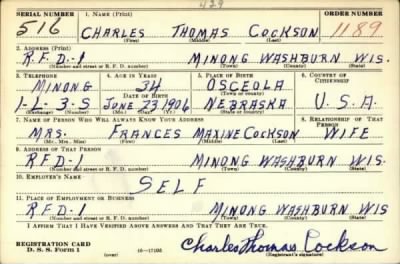 429
SERIAL NUMBER 1. NAME (Print) ORDER NUMBER
516 CHARLES THOMAS COCKSON 1189
(First) (Middle) (Last)
2. ADDRESS (Print)
R.F.D-1 MINONG WASHBURN WIS.
(Number and street or R. F. D. number) (Town) (County) (State)
3. TELEPHONE 4. AGE IN YEARS 5. PLACE OF BIRTH 6. COUNTRY OF CITIZENSHIP
MINONG 34 OSCEOLA
DATE OF BIRTH (Town or county)
1-L-3-S JUNE 23 1906 NEBRASKA U.S.A.
(Exchange) (Number) (Mo.) (Day) (Yr.) (State or country)
7. NAME OF PERSON WHO WILL ALWAYS KNOW YOUR ADDRESS 8. RELATIONSHIP OF THAT PERSON
MRS. FRANCES MAXINE COCKSON WIFE
(Mr., Mrs., Miss) (First) (Middle) (Last)
9. ADDRESS OF THAT PERSON
RFD-1 MINONG WASHBURN WIS.
(Number and street or R. F. D. number) (Town) (County) (State)
10. EMPLOYER'S NAME
SELF
11. PLACE OF EMPLOYMENT OR BUSINESS
R.F.D-1 MINONG WASHBURN WIS
(Number and street or R. F. D. number) (Town) (County) (State)
I AFFIRM THAT I HAVE VERIFIED ABOVE ANSWERS AND THAT THEY ARE TRUE.
REGISTRATION CARD
D. S. S. FORM 1 (over) 16-17105 Charles Thomas Cockson
(Registrant's signature)